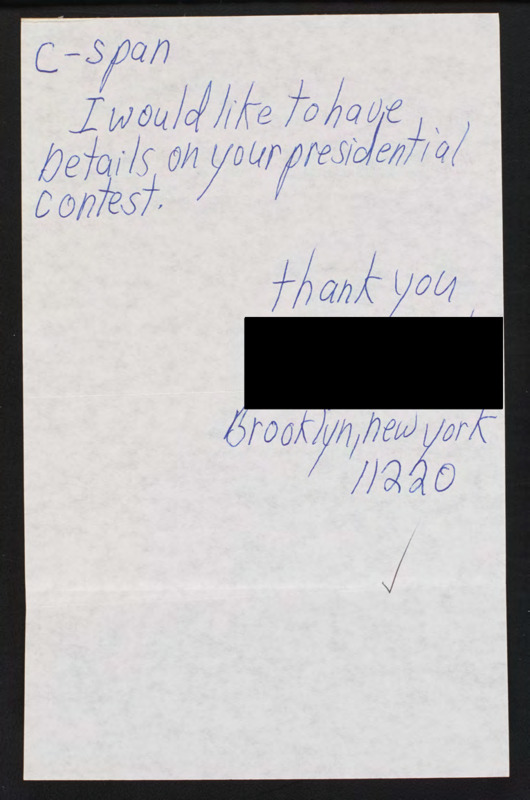 C-span
I would like to have
Details on your presidential
contest.
thank you
Brooklyn, new york
11220